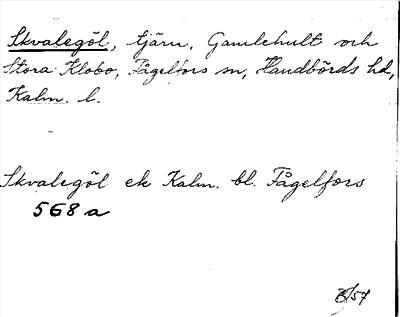 Skvalegöl, tjärn, Gamlehult och
Stora Klobo, Fågelfors sn, Handbörds hd,
Kalm. l.
Skvalegöl ek Kalm. bl. Fågelfors
568 a
/57